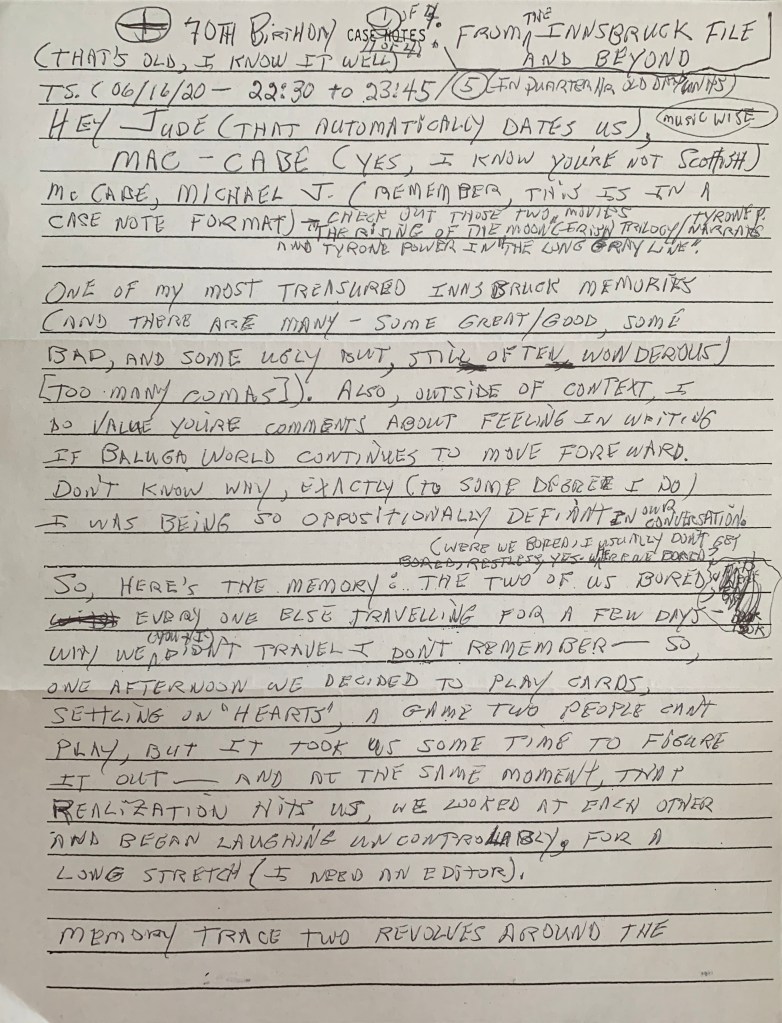 70TH BIRTHDAY CASE NOTES 1 OF 4: FROM THE INNSBRUCK FILE
(THAT'S OLD, I KNOW IT WELL) AND BEYOND
TS. (06/16/20 — 22:30 TO 23:45/ 5 (IN QUARTER HR. OLD UNITS)
HEY JUDE (THAT AUTOMATICALLY DATES US), MUSIC WISE
MAC - CABE (YES, I KNOW YOU'RE NOT SCOTTISH)
MCCABE, MICHAEL J. (REMEMBER, THIS IS IN A
CASE NOTE FORMAT) - CHECK OUT THOSE TWO MOVIES
"THE RISING OF THE MOON (IRISH TRILOGY/TYRONE P. NARRATES
AND TYRONE POWER IN "THE LONG GRAY LINE".
ONE OF MY MOST TREASURED INNSBRUCK MEMORIES
(AND THERE ARE MANY - SOME GREAT/GOOD, SOME
BAD, AND SOME UGLY BUT, STILL OFTEN WONDEROUS)
[TOO MANY COMAS]). ALSO, OUTSIDE OF CONTEXT, I
DO VALUE YOU'RE COMMENTS ABOUT FEELING IN WRITING
IF BALUGA WORLD CONTINUES TO MOVE FOREWARD.
DON'T KNOW WHY, EXACTLY (TO SOME DEGREE I DO)
I WAS BEING SO OPPOSITIONALLY DEFIANT IN OUR CONVERSATION.
(WERE WE BORED, I USUALLY DON'T GET
BORED, RESTLESS, YES - WERE WE BORED?
SO, HERE'S THE MEMORY: THE TWO OF US BORED,
EVERY ONE ELSE TRAVELLING FOR A FEW DAYS -
WHY WE (YOU & I) DIDN'T TRAVEL I DON'T REMEMBER — SO,
ONE AFTERNOON WE DECIDED TO PLAY CARDS,
SETTLING ON "HEARTS", A GAME TWO PEOPLE CAN'T
PLAY, BUT IT TOOK US SOME TIME TO FIGURE
IT OUT — AND AT THE SAME MOMENT, THAT
REALIZATION HITS US, WE LOOKED AT EACH OTHER
AND BEGAN LAUGHING UNCONTROLLABLY, FOR A
LONG STRETCH (I NEED AN EDITOR).
MEMORY TRACE TWO REVOLVES AROUND THE